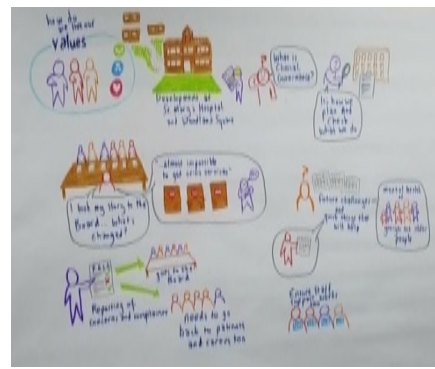 how do
we live our
values
Development of
St Mary's Hospital
and Woodland Square
What is
Clinical
Governance?
It's how we
plan and
check
what we do
"almost impossible
to get into services"
I took my story to the
Board... what's
changed?
future challenges
and
good things that
will help
mental health
groups
older
people
FACT
goes to the
Board
Reporting of
concerns and compliments
needs to go
back to patients
and carers too
Ensure staff